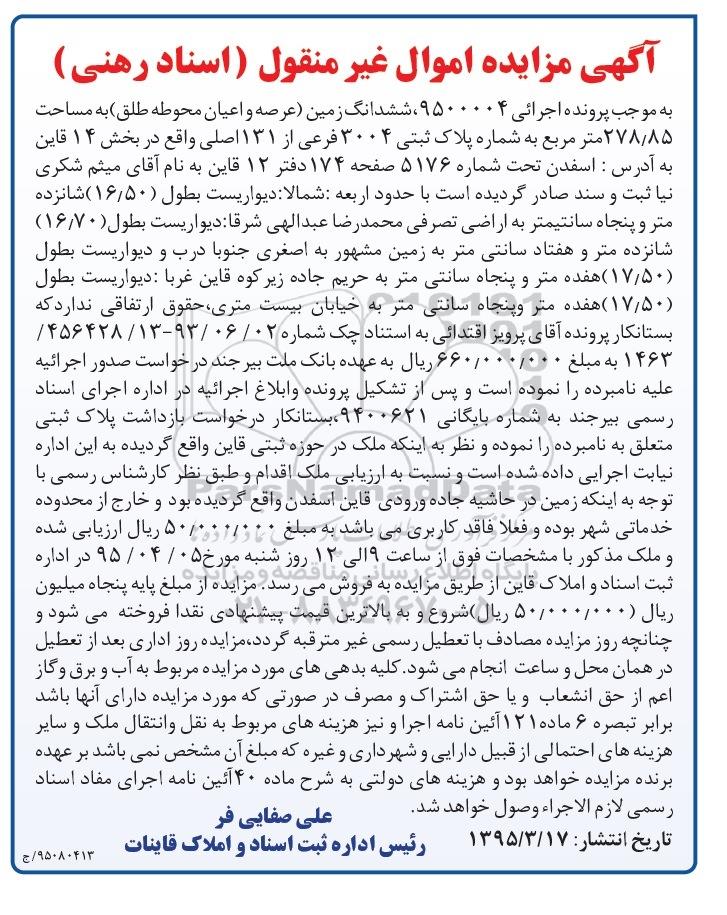 آگهی مزایده اموال غیر منقول (اسناد رهنی)
به موجب پرونده اجرائی ۹۵۰۰۰۰۴،ششدانگ زمین (عرصه و اعیان محوطه طلق)به مساحت
۲۷۸٫۸۵متر مربع به شماره پلاک ثبتی ۳۰۰۴ فرعی از ۱۳۱اصلی واقع در بخش ۱۴ قاین
به آدرس : اسفدن تحت شماره ۵۱۷۶ صفحه ۱۷۴دفتر ۱۲ قاین به نام آقای میثم شکری
نیا ثبت و سند صادر گردیده است با حدود اربعه :شمالا:دیواریست بطول (۱۶٫۵۰)شانزده
متر و پنجاه سانتیمتر به اراضی تصرفی محمدرضا عبدالهی شرقا:دیواریست بطول(۱۶٫۷۰)
شانزده متر و هفتاد سانتی متر به زمین مشهور به اصغری جنوبا درب و دیواریست بطول
(۱۷٫۵۰)هفده متر و پنجاه سانتی متر به حریم جاده زیرکوه قاین غربا :دیواریست بطول
(۱۷٫۵۰)هفده متر وپنجاه سانتی متر به خیابان بیست متری،حقوق ارتفاقی نداردکه
بستانکار پرونده آقای پرویز اقتدائی به استناد چک شماره ۰۲/ ۰۶/ ۹۳-۱۳/ ۴۵۶۴۲۸/
۱۴۶۳ به مبلغ ۶۶۰٫۰۰۰٫۰۰۰ ریال به عهده بانک ملت بیرجند درخواست صدور اجرائیه
علیه نامبرده را نموده است و پس از تشکیل پرونده وابلاغ اجرائیه در اداره اجرای اسناد
رسمی بیرجند به شماره بایگانی ۹۴۰۰۶۲۱،بستانکار درخواست بازداشت پلاک ثبتی
متعلق به نامبرده را نموده و نظر به اینکه ملک در حوزه ثبتی قاین واقع گردیده به این اداره
نیابت اجرایی داده شده است و نسبت به ارزیابی ملک اقدام و طبق نظر کارشناس رسمی با
توجه به اینکه زمین در حاشیه جاده ورودی قاین اسفدن واقع گردیده بود و خارج از محدوده
خدماتی شهر بوده و فعلا فاقد کاربری می باشد به مبلغ ۵۰٫۰۰۰٫۰۰۰ ریال ارزیابی شده
و ملک مذکور با مشخصات فوق از ساعت ۹الی ۱۲ روز شنبه مورخ۰۵/ ۰۴/ ۹۵ در اداره
ثبت اسناد و املاک قاین از طریق مزایده به فروش می رسد. مزایده از مبلغ پایه پنجاه میلیون
ریال (۵۰٫۰۰۰٫۰۰۰ ریال)شروع و به بالاترین قیمت پیشنهادی نقدا فروخته می شود و
چنانچه روز مزایده مصادف با تعطیل رسمی غیر مترقبه گردد،مزایده روز اداری بعد از تعطیل
در همان محل و ساعت انجام می شود.کلیه بدهی های مورد مزایده مربوط به آب و برق وگاز
اعم از حق انشعاب و یا حق اشتراک و مصرف در صورتی که مورد مزایده دارای آنها باشد
برابر تبصره ۶ ماده۱۲۱آئین نامه اجرا و نیز هزینه های مربوط به نقل وانتقال ملک و سایر
هزینه های احتمالی از قبیل دارایی و شهرداری و غیره که مبلغ آن مشخص نمی باشد بر عهده
برنده مزایده خواهد بود و هزینه های دولتی به شرح ماده ۴۰آئین نامه اجرای مفاد اسناد
رسمی لازم الاجراء وصول خواهد شد.
علی صفایی فر
تاریخ انتشار: ۱۳۹۵/۳/۱۷
رئیس اداره ثبت اسناد و املاک قاینات
۹۵۰۸۰۴۱۳/ج
ParsNamadData
پایگاه اطلاع رسانی مناقصه و مزایده
۰۲۱-۸۸۳۴۹۶۷۰-۵